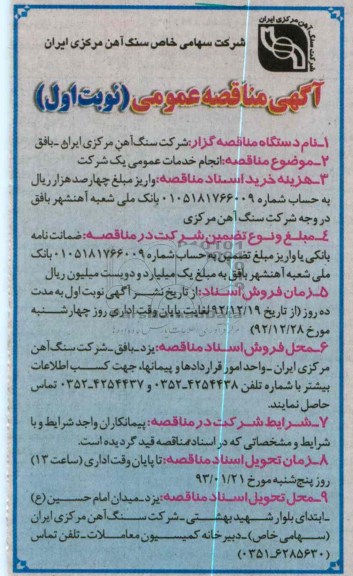 شرکت سنگ آهن مرکزی ایران
شرکت سهامی خاص سنگ آهن مرکزی ایران
آگهی مناقصه عمومی (نوبت اول)
۱-نام دستگاه مناقصه گزار: شرکت سنگ آهن مرکزی ایران - بافق
۲-موضوع مناقصه: انجام خدمات عمومی یک شرکت
۳-هزینه خرید اسناد مناقصه: واریز مبلغ چهارصد هزار ریال
به حساب شماره ۰۱۰۵۱۸۱۷۶۶۰۰۹ بانک ملی شعبه آهنشهر بافق
در وجه شرکت سنگ آهن مرکزی
۴-مبلغ و نوع تضمین شرکت در مناقصه: ضمانت نامه
بانکی یا واریز مبلغ تضمین به حساب شماره ۰۱۰۵۱۸۱۷۶۶۰۰۹ بانک
ملی شعبه آهنشهر بافق به مبلغ یک میلیارد و دویست میلیون ریال
۵-زمان فروش اسناد: از تاریخ نشر آگهی نوبت اول به مدت
ده روز (از تاریخ ۹۲/۱۲/۱۹ لغایت پایان وقت اداری روز چهارشنبه
مورخ ۹۲/۱۲/۲۸)
۶-محل فروش اسناد مناقصه: یزد-بافق-شرکت سنگ آهن
مرکزی ایران - واحد امور قراردادها و پیمانها، جهت کسب اطلاعات
بیشتر با شماره تلفن ۴۲۵۴۴۳۸-۰۳۵۲ و ۴۲۵۴۴۳۷-۰۳۵۲ تماس
حاصل نمایند.
۷-شرایط شرکت در مناقصه: پیمانکاران واجد شرایط و با
شرایط و مشخصاتی که در اسناد مناقصه قید گردیده است.
۸-زمان تحویل اسناد مناقصه: تا پایان وقت اداری (ساعت ۱۳)
روز پنج شنبه مورخ ۹۳/۰۱/۲۱
۹-محل تحویل اسناد مناقصه: یزد-میدان امام حسین (ع)
-ابتدای بلوار شهید بهشتی - شرکت سنگ آهن مرکزی ایران
(سهامی خاص)-دبیرخانه کمیسیون معاملات-تلفن تماس
(۰۳۵۱-۶۲۸۵۶۳۰)